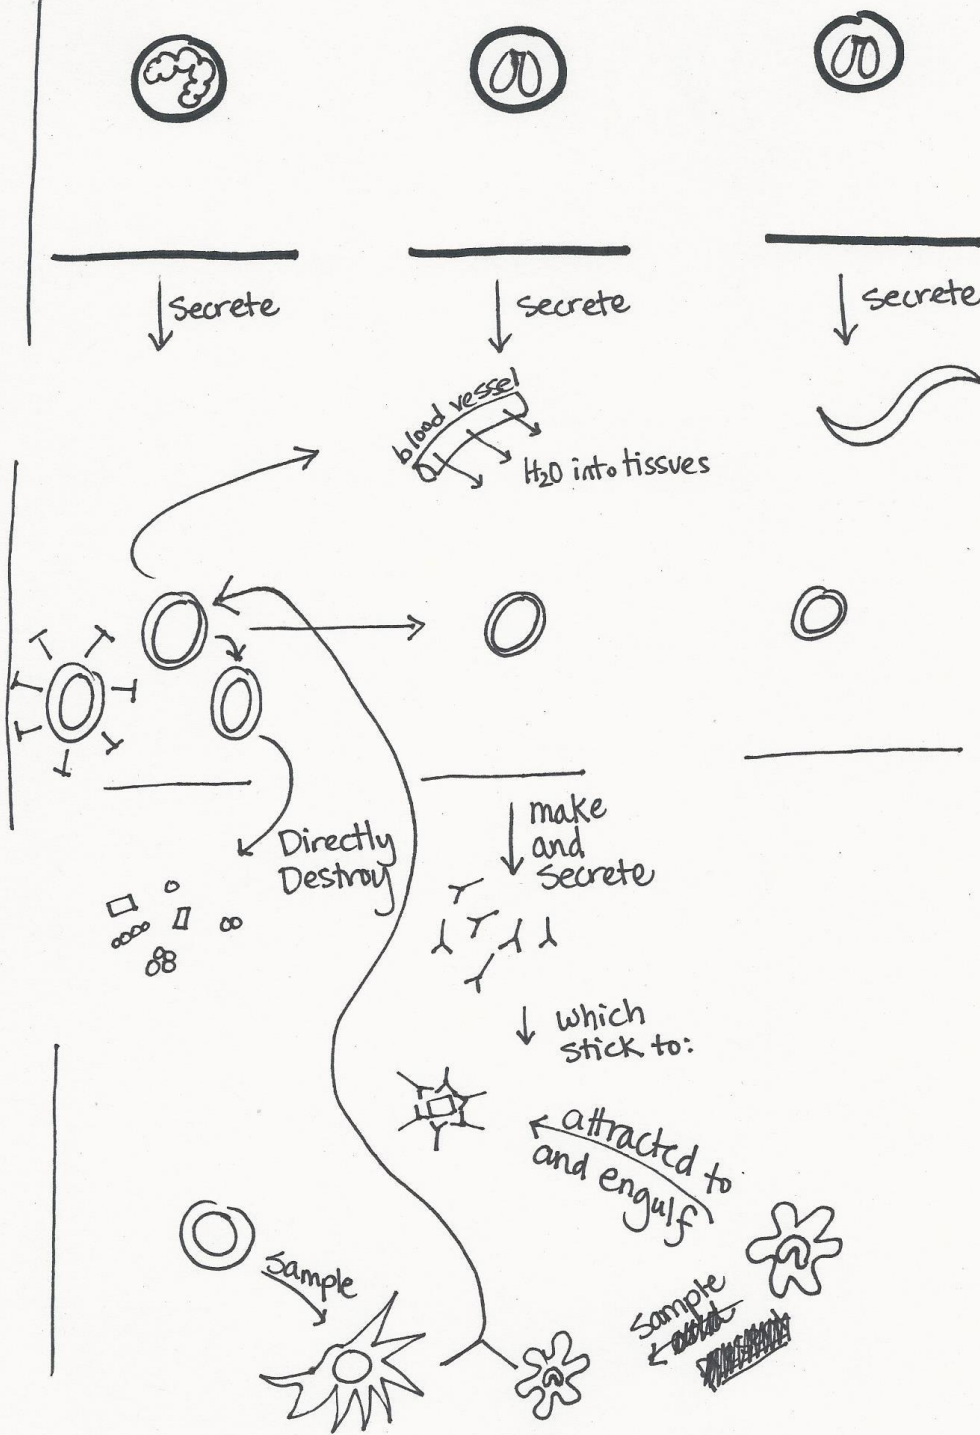 secrete
secrete
secrete
blood vessel
H2O into tissues
Directly
Destroy
make
and
secrete
which
stick to:
attracted to
and engulf
sample
sample